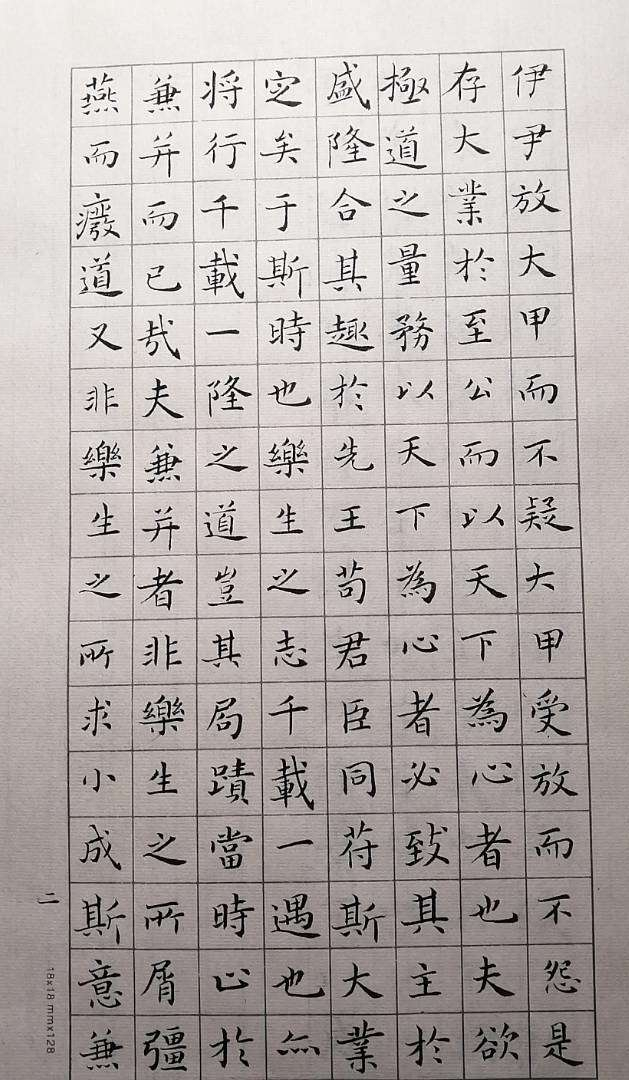 伊尹放大甲而不疑大甲受放而不怨是
存大業於至公而以天下為心者也夫欲
極道之量務以天下為心者必致其主於
盛隆合其趣於先王苟君臣同苻斯大業
定矣于斯時也樂生之志千載一遇也亦
将行千載一隆之道豈其局蹟當時止於
兼并而已哉夫兼并者非樂生之所屑彊
燕而癈道又非樂生之所求小成斯意兼
二
18x18 mmx128